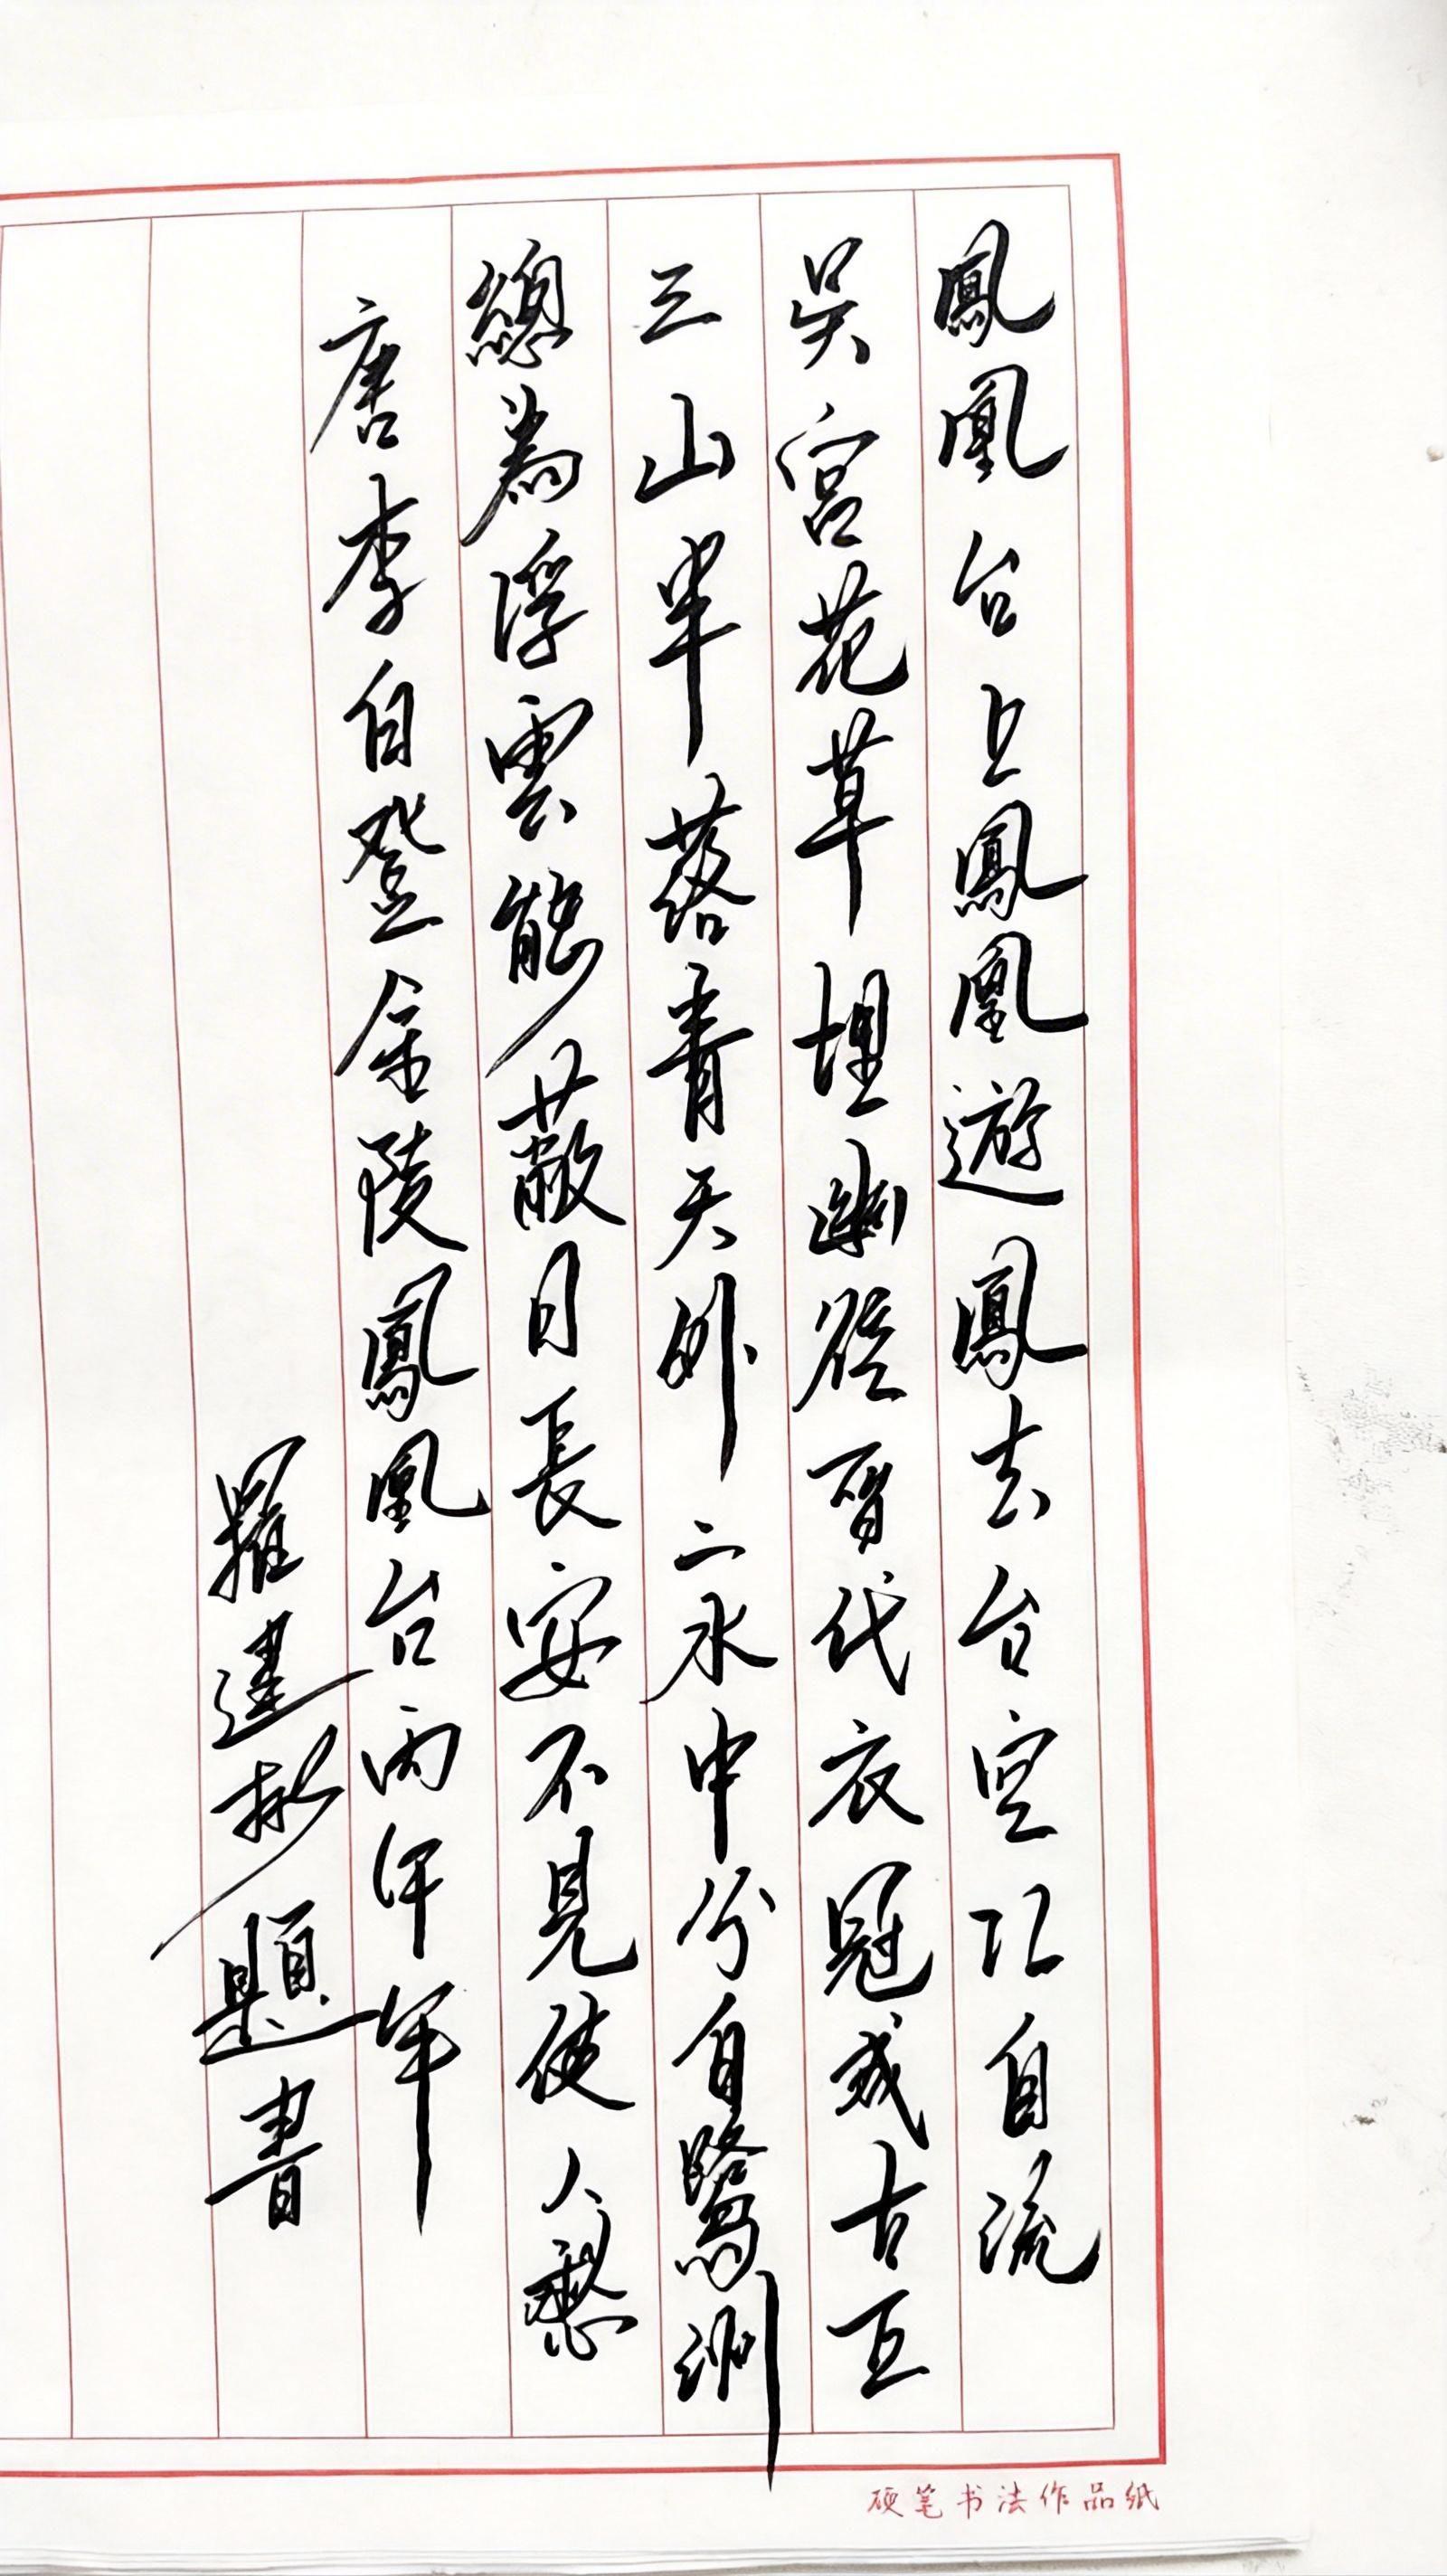 鳳凰台上鳳凰遊鳳去台空江自流
吳宮花草埋幽徑晉代衣冠成古丘
三山半落青天外二水中分白鷺洲
總為浮雲能蔽日長安不見使人愁
唐李白登金陵鳳凰台丙午年
羅建彬題書
硬笔书法作品纸